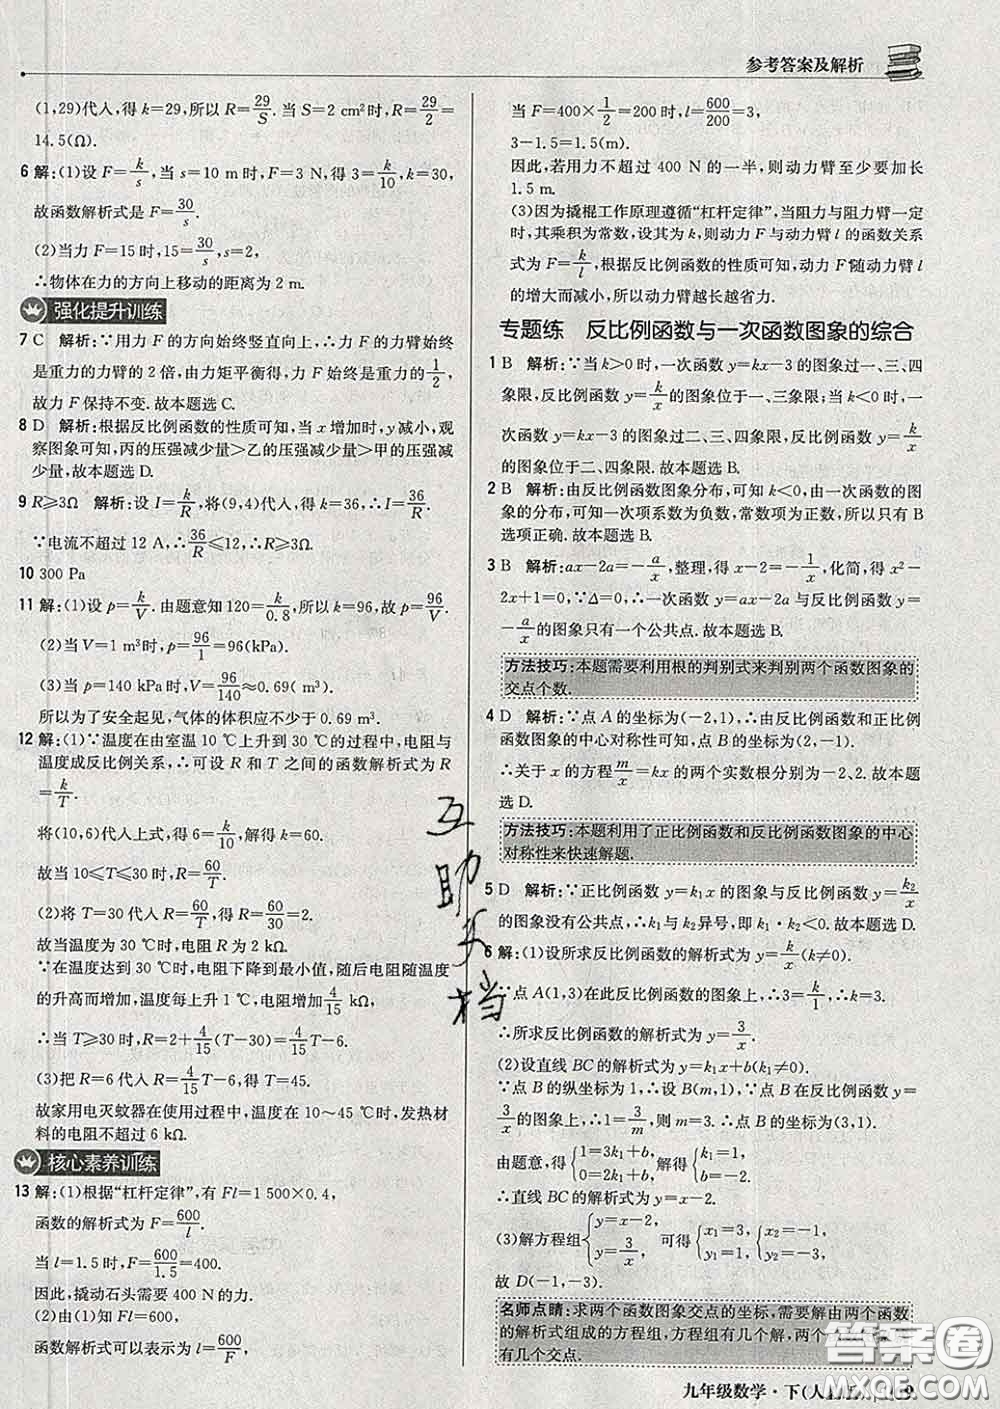 参考答案及解析
(1,29)代入,得 k=29,所以 R=29/S. 当 S=2 cm²时,R=29/2=
14.5(Ω).
6 解:(1)设 F=k/s,当 s=10 m时,F=3 N,得 3=k/10,k=30,
故函数解析式是 F=30/s.
(2)当力 F=15时,15=30/s,s=2,
∴物体在力的方向上移动的距离为 2 m.
强化提升训练
7 C 解析:∵用力 F 的方向始终竖直向上,∴F 的力臂始终
是重力的力臂的 2 倍,由力矩平衡得,力 F 始终是重力的1/2,
故力 F 保持不变.故本题选 C.
8 D 解析:根据反比例函数的性质可知,当 x 增加时,y减小,观
察图象可知,丙的压强减少量>乙的压强减少量>甲的压强减
少量,故本题选 D.
9 R≥3Ω 解析:设 I=k/R,将(9,4)代入,得 k=36,∴I=36/R.
∵电流不超过 12 A,∴36/R≤12,∴R≥3Ω.
10 300 Pa
11 解:(1)设 p=k/V.由题意知120=k/0.8,所以 k=96,故 p=96/V.
(2)当 V=1 m³时,p=96/1=96(kPa).
(3)当 p=140 kPa时,V=96/140≈0.69(m³).
所以为了安全起见,气体的体积应不少于 0.69 m³.
12 解:(1)∵温度在由室温 10 ℃上升到 30 ℃的过程中,电阻与
温度成反比例关系,∴可设 R 和 T 之间的函数解析式为 R
=k/T.
将(10,6)代入上式,得 6=k/10,解得 k=60.
故当 10≤T≤30 时,R=60/T.
(2)将 T=30 代入 R=60/T,得 R=60/30=2.
故当温度为 30 ℃时,电阻 R 为 2 kΩ.
∵在温度达到 30 ℃时,电阻下降到最小值,随后电阻随温度
的升高而增加,温度每上升 1 ℃,电阻增加4/15 kΩ,
∴当 T≥30 时,R=2+4/15(T-30)=4/15T-6.
(3)把 R=6 代入 R=4/15T-6,得 T=45.
故家用电灭蚊器在使用过程中,温度在 10~45 ℃时,发热材
料的电阻不超过 6 kΩ.
核心素养训练
13 解:(1)根据“杠杆定律”,有 Fl=1 500×0.4,
函数的解析式为 F=600/l.
当 l=1.5时,F=600/1.5=400.
因此,撬动石头需要 400 N的力.
(2)由(1)知 Fl=600,
函数解析式可以表示为 l=600/F,
当 F=400×1/2=200 时,l=600/200=3,
3-1.5=1.5(m).
因此,若用力不超过 400 N 的一半,则动力臂至少要加长
1.5 m.
(3)因为撬棍工作原理遵循“杠杆定律”,当阻力与阻力臂一定
时,其乘积为常数,设其为 k,则动力 F与动力臂 l 的函数关系
式为 F=k/l,根据反比例函数的性质可知,动力 F随动力臂 l
的增大而减小,所以动力臂越长越省力.
专题练 反比例函数与一次函数图象的综合
1 B 解析:当 k>0 时,一次函数 y=kx-3 的图象过一、三、四
象限,反比例函数 y=k/x的图象位于一、三象限;当 k<0 时,一
次函数 y=kx-3 的图象过二、三、四象限,反比例函数 y=k/x
的图象位于二、四象限.故本题选 B.
2 B 解析:由反比例函数图象分布,可知 k<0,由一次函数的图
象的分布,可知一次项系数为负数,常数项为正数,所以只有 B
选项正确.故本题选 B.
3 B 解析:ax-2a=-a/x,整理,得 x-2=-1/x,化简,得 x²-
2x+1=0,∵Δ=0,∴一次函数 y=ax-2a 与反比例函数 y=
-a/x的图象只有一个公共点.故本题选 B.
方法技巧:本题需要利用根的判别式来判别两个函数图象的
交点个数.
4 D 解析:∵点 A 的坐标为(-2,1),∴由反比例函数和正比例
函数图象的中心对称性可知,点 B 的坐标为(2,-1).
∴关于 x 的方程m/x=kx 的两个实数根分别为-2、2.故本题
选 D.
方法技巧:本题利用了正比例函数和反比例函数图象的中心
对称性来快速解题.
5 D 解析:∵正比例函数 y=k₁x 的图象与反比例函数 y=k₂/x
的图象没有公共点,∴k₁与 k₂异号,即 k₁·k₂<0.故本题选 D.
6 解:(1)设所求反比例函数的解析式为 y=k/x(k≠0).
∵点 A(1,3)在此反比例函数的图象上,∴3=k/1,∴k=3.
∴所求反比例函数的解析式为 y=3/x.
(2)设直线 BC 的解析式为 y=k₁x+b(k₁≠0).
∵点 B 的纵坐标为 1,∴设 B(m,1),∵点 B 在反比例函数 y=
3/x的图象上,∴1=3/m,则 m=3.∴点 B 的坐标为(3,1).
由题意,得{1=3k₁+b, 0=2k₁+b,解得{k₁=1, b=-2.
∴直线 BC 的解析式为 y=x-2.
(3)解方程组{y=x-2, y=3/x, 可得{x₁=3, y₁=1, {x₂=-1, y₂=-3.
故 D(-1,-3).
名师点睛:求两个函数图象交点的坐标,需要解由两个函数
的解析式组成的方程组,方程组有几个解,两个
有几个交点.
互助文档
答案卷
九年级数学·下(人